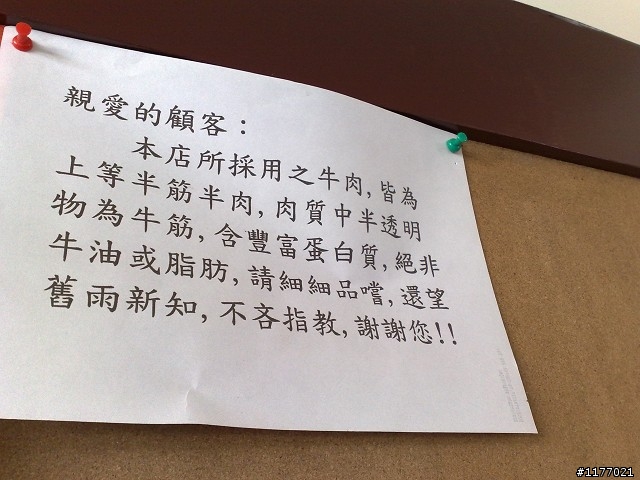 親愛的顧客：
本店所採用之牛肉, 皆為
上等半筋半肉, 肉質中半透明
物為牛筋, 含豐富蛋白質, 絕非
牛油或脂肪, 請細細品嚐, 還望
舊雨新知, 不吝指教, 謝謝您!!
#1177021